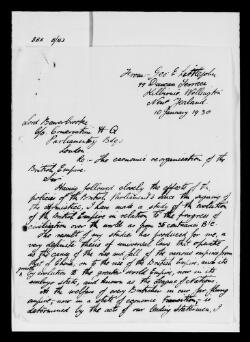 From:- Geo. E. Littlejohn
44 Duncan Terrace
Kilbirnie Wellington
New Zealand
10 January 1930
Lord Beaverbrooke
C/o Conservative H Q
Parliamentary Bdgs
London
Re - The economic reorganisation of the
British Empire.
Sir
Having followed closely the efforts of the
policies of the British Parliament since the signing of
the Armistice, I have made a study of the Evolution
of the British Empire in relation to the progress of
civilisation over the world as from 35 centuries B.C.
The result of my studies has produced for me, a
very definite thesis of universal laws that operate
as the cause of the rise and fall of the various empires from
that of on to the rise of the British Empire, and its
by evolution to the greater world Empire, now in its
embryo state, and known as the League of Nations.
As the welfare of every Britisher in our far flung
empire, now in a state of economic transition, is
determined by the acts of our leading Statesmen, I